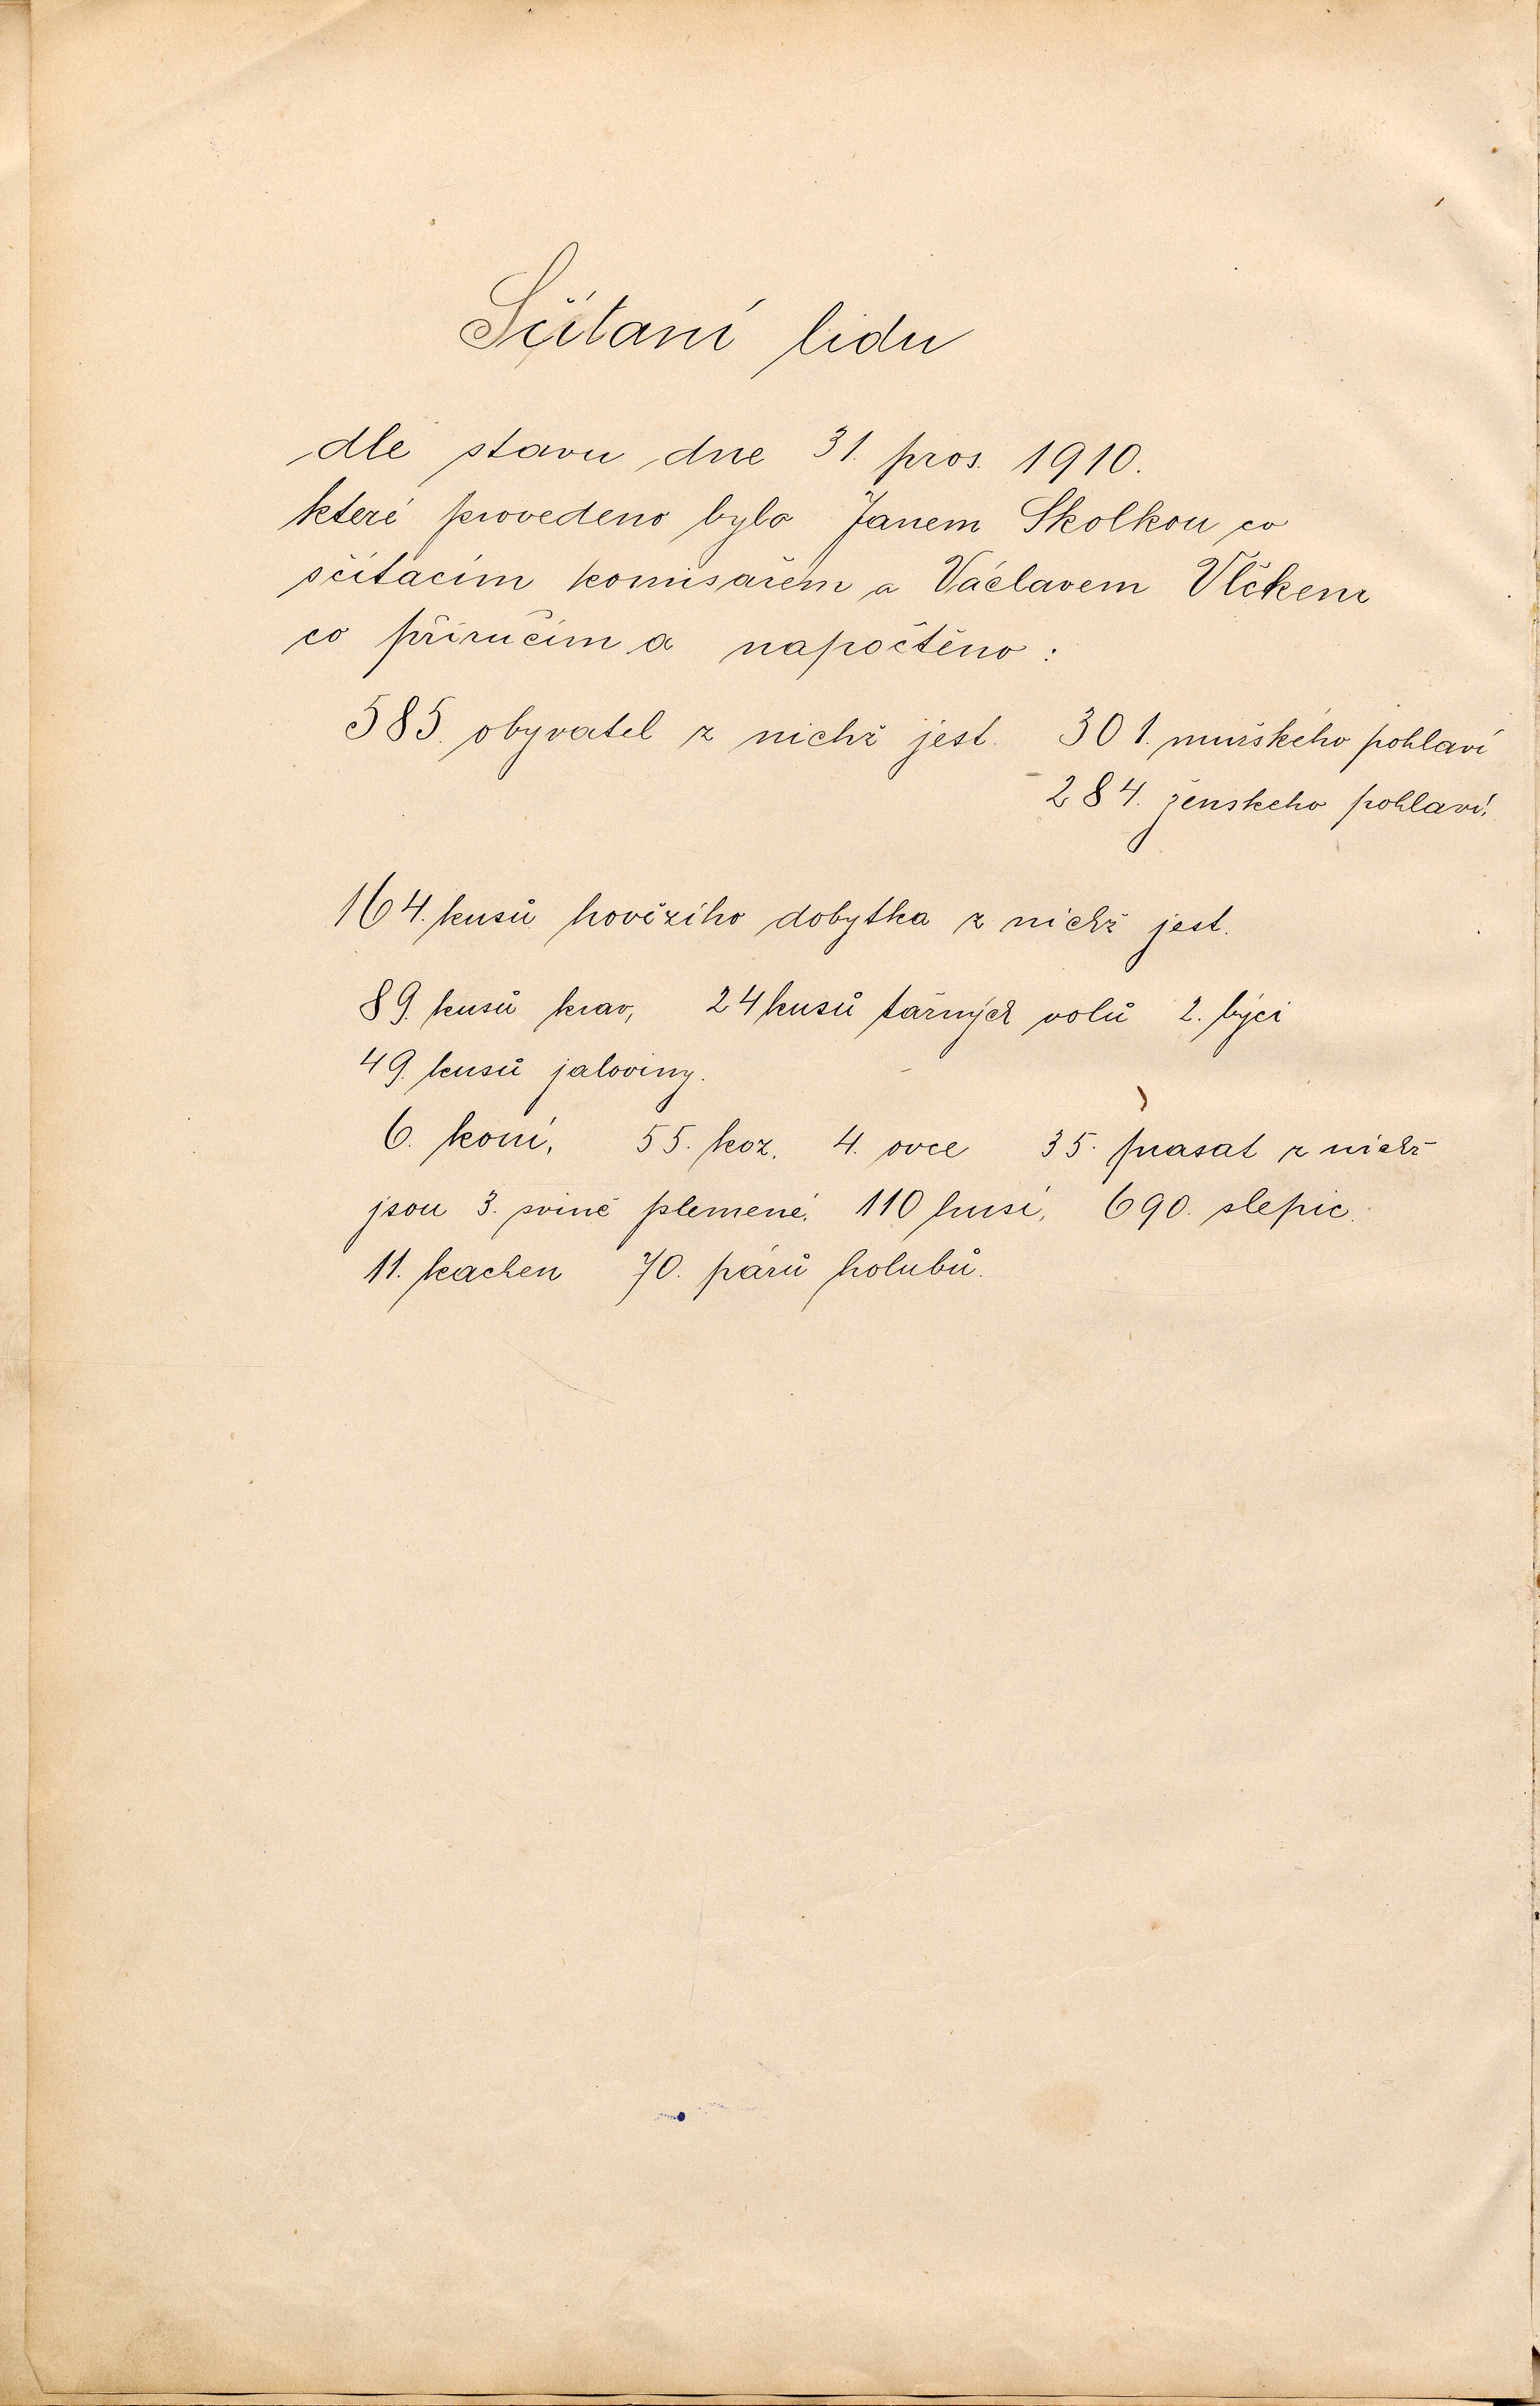 Sčítaní lidu
dle stavu dne 31. pros. 1910.
které provedeno bylo Janem Skolkou co
sčítacím komisařem a Václavem Vlčkem
co příručím a napočtěno :
585. obyvatel z nichž jest. 301. mužského pohlaví
284. ženskeho pohlaví.
164. kusů hovězího dobytka z nichž jest.
89. kusů krav, 24 kusů tažných volů 2. býci
49. kusů jaloviny.
6. koní, 55. koz. 4. ovce 35. prasat z nichž
jsou 3. svině plemené. 110 husí, 690. slepic.
11. kachen 70. párů holubů.